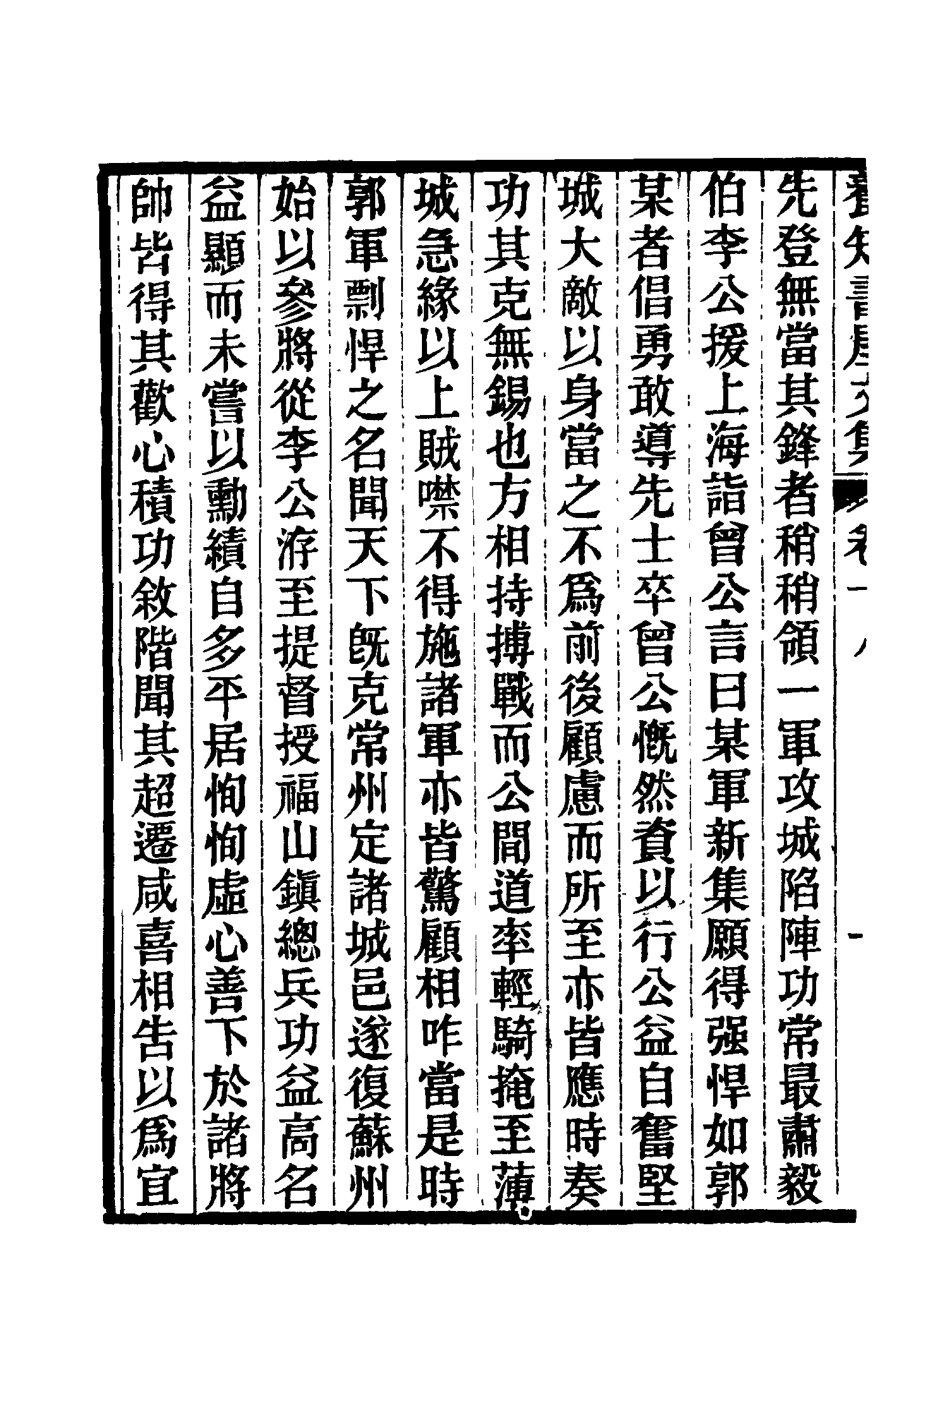 養知書屋文集 卷十八 一
先登無當其鋒者稍稍領一軍攻城陷陣功常最肅毅
伯李公援上海詣曾公言曰某軍新集願得强悍如郭
某者倡勇敢導先士卒曾公慨然資以行公益自奮堅
城大敵以身當之不爲前後顧慮而所至亦皆應時奏
功其克無錫也方相持搏戰而公閒道率輕騎掩至薄
城急緣以上賊噤不得施諸軍亦皆驚顧相咋當是時
郭軍剽悍之名聞天下旣克常州定諸城邑遂復蘇州
始以參將從李公洊至提督授福山鎭總兵功益高名
益顯而未嘗以勳績自多平居恂恂虛心善下於諸將
帥皆得其歡心積功敘階聞其超遷咸喜相告以爲宜